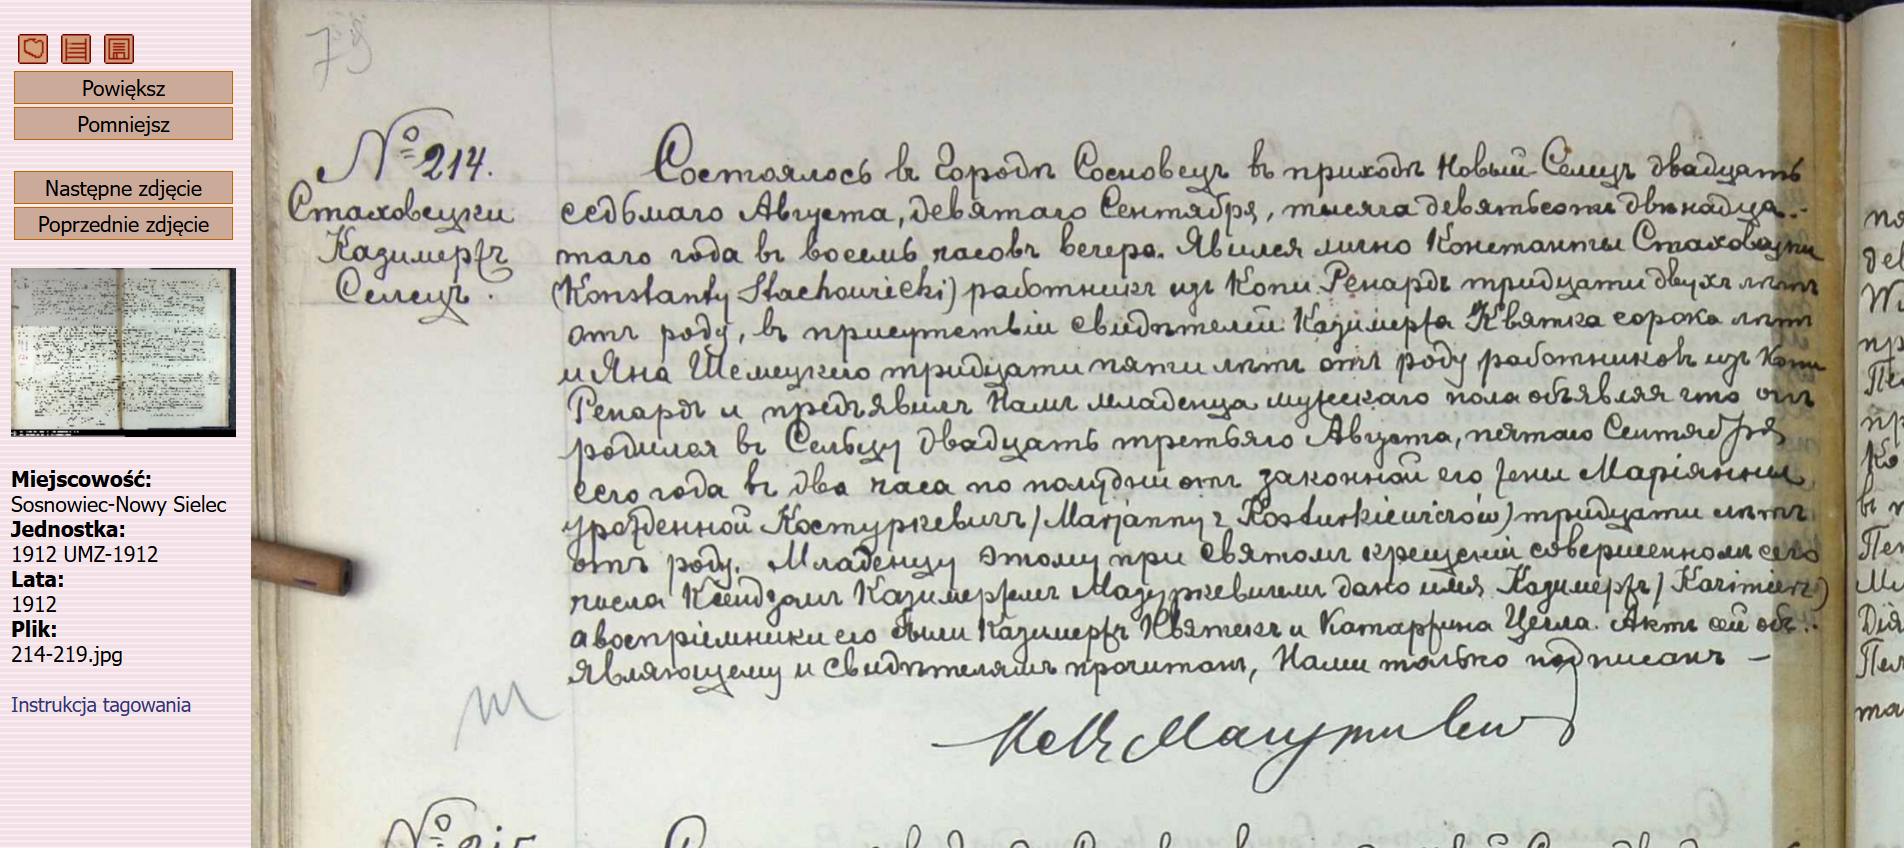 Powiększ
Pomniejsz
Następne zdjęcie
Poprzednie zdjęcie
Miejscowość:
Sosnowiec-Nowy Sielec
Jednostka:
1912 UMZ-1912
Lata:
1912
Plik:
214-219.jpg
Instrukcja tagowania
79
№ 214.
Стаховецки
Казимерж
Селец.
Состоялось въ городѣ Сосновецъ въ приходѣ Новый-Селецъ двадцать
седьмаго Августа, девятаго Сентября, тысяча девятьсотъ двѣнадца-
таго года въ восемь часовъ вечера. Явился лично Константы Стаховецки
(Konstanty Stachowiecki) работникъ изъ Копи Ренардъ тридцати двухъ лѣтъ
отъ роду, въ присутствіи свидѣтелей Казимержа Квятка сорока лѣтъ
и Яна Шемецкаго тридцати пяти лѣтъ отъ роду работниковъ изъ Копи
Ренардъ и предъявилъ Намъ младенца мужскаго пола объявляя что онъ
родился въ Сельцу двадцать третьяго Августа, пятаго Сентября
сего года въ два часа по полудни отъ законной его жены Маріянны
урожденной Костуркевичъ (Marjanny z Kosturkiewiczów) тридцати лѣтъ
отъ роду. Младенцу этому при святомъ крещеніи совершенномъ сего
числа Ксендзомъ Казимержемъ Мазуркевичемъ дано имя Казимержъ (Kazimierz)
а воспріемники его были Казимержъ Квятекъ и Катаржина Цегла. Актъ сей объ-
являющему и свидѣтелямъ прочитанъ, Нами только подписанъ —
№ 215